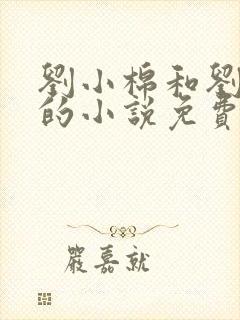 劉小棉和劉
的小說免費
嚴嘉就